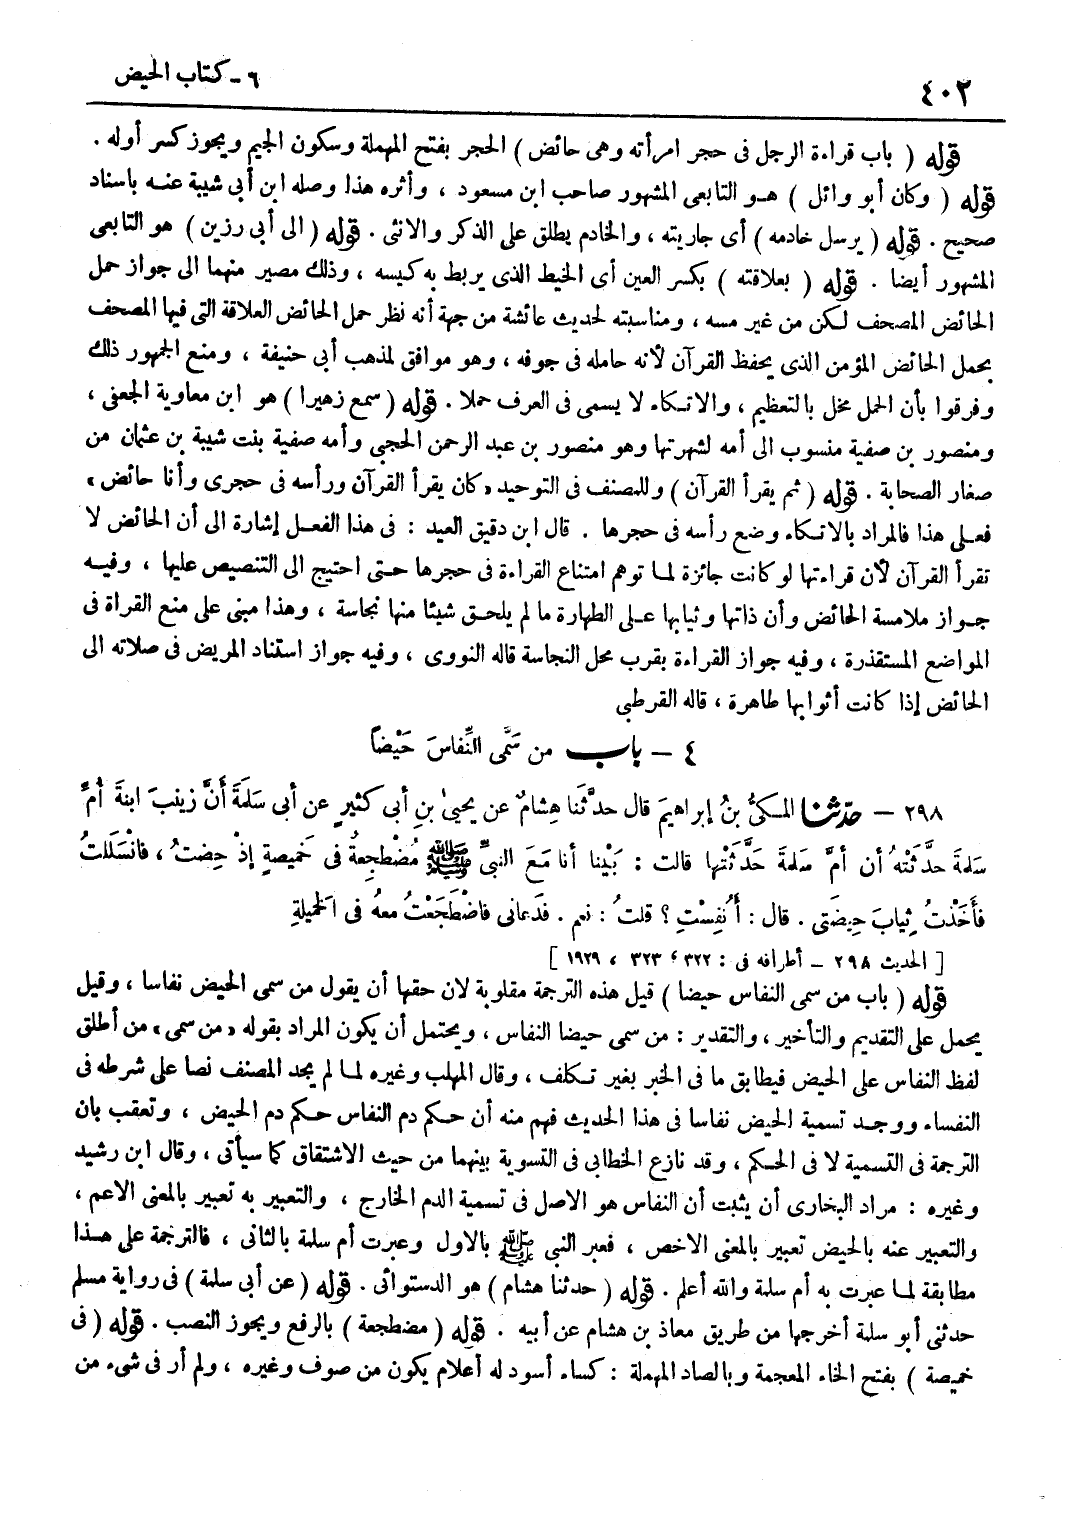 ٤٠٢
٦ - كتاب الحيض
قوله ( باب قراءة الرجل فى حجر امرأته وهى حائض ) الحجر بفتح المهملة وسكون الجيم ويجوز كسر أوله .
قوله ( وكان أبو وائل ) هـو التابعى المشهور صاحب ابن مسعود ، وأثره هذا وصله ابن أبى شيبة عنـه باسناد
صحيح . قوله ( يرسل خادمه ) أى جاريته ، والخادم يطلق على الذكر والانثى . قوله ( الى أبى رزين ) هو التابعى
المشهور أيضا . قوله ( بعلاقته ) بكسر العين أى الخيط الذى يربط به كيسه ، وذلك مصير منهما الى جواز حمل
الحائض المصحف لكن من غير مسه ، ومناسبته لحديث عائشة من جهة أنه نظر حمل الحائض العلاقة التى فيها المصحف
بحمل الحائض المؤمن الذى يحفظ القرآن لأنه حامله فى جوفه ، وهو موافق لمذهب أبى حنيفة ، ومنع الجمهور ذلك
وفرقوا بأن الحمل مخل بالتعظيم ، والاتكاء لا يسمى فى العرف حملا . قوله ( سمع زهيرا ) هو ابن معاوية الجعفى ،
ومنصور بن صفية منسوب الى أمه لشهرتها وهو منصور بن عبد الرحمن الحجبى وأمه صفية بنت شيبة بن عثمان من
صغار الصحابة . قوله ( ثم يقرأ القرآن ) وللمصنف فى التوحيد «كان يقرأ القرآن ورأسه فى حجرى وأنا حائض»
فعلى هذا فالمراد بالاتكاء وضع رأسه فى حجرها . قال ابن دقيق العيد : فى هذا الفعل إشارة الى أن الحائض لا
تقرأ القرآن لأن قراءتها لو كانت جائزة لما توهم امتناع القراءة فى حجرها حتى احتيج الى التنصيص عليها ، وفيه
جواز ملامسة الحائض وأن ذاتها وثيابها على الطهارة ما لم يلحق شيئا منها نجاسة ، وهذا مبنى على منع القراة فى
المواضع المستقذرة ، وفيه جواز القراءة بقرب محل النجاسة قاله النووى ، وفيه جواز استناد المريض فى صلاته الى
الحائض إذا كانت أثوابها طاهرة ، قاله القرطبى
٤ - باب من سَمَّى النِّفاسَ حَيْضاً
٢٩٨ - حدّثنا المكىُّ بنُ إبراهيمَ قال حدَّثَنا هِشامٌ عن يحيىٰ بنِ أبى كثيرٍ عن أبى سَلَمَةَ أنَّ زينبَ ابنةَ أمِّ
سَلمةَ حدَّثَتْهُ أن أمَّ سَلمةَ حَدَّثَتْها قالت : بَيْنا أنا مَعَ النبىِّ ﷺ مُضْطجِعةٌ فى خَميصةٍ إذْ حِضتُ ، فانْسَلَلتُ
فأخَذْتُ ثِيابَ حِيضَتى . قال : أنُفِسْتِ ؟ قلتُ : نعم . فدَعانى فاضْطَجَعْتُ معهُ فى الخَميلةِ
[ الحديث ٢٩٨ - أطرافه فى : ٣٢٢ ، ٣٢٣ ، ١٩٢٩ ]
قوله ( باب من سمى النفاس حيضا ) قيل هذه الترجمة مقلوبة لان حقها أن يقول من سمى الحيض نفاسا ، وقيل
يحمل على التقديم والتأخير ، والتقدير : من سمى حيضا النفاس ، ويحتمل أن يكون المراد بقوله «من سمى» من أطلق
لفظ النفاس على الحيض فيطابق ما فى الخبر بغير تكلف ، وقال المهلب وغيره لما لم يجد المصنف نصا على شرطه فى
النفساء ووجد تسمية الحيض نفاسا فى هذا الحديث فهم منه أن حكم دم النفاس حكم دم الحيض ، وتعقب بان
الترجمة فى التسمية لا فى الحكم ، وقد نازع الخطابى فى التسوية بينهما من حيث الاشتقاق كما سيأتى ، وقال ابن رشيد
وغيره : مراد البخارى أن يثبت أن النفاس هو الاصل فى تسمية الدم الخارج ، والتعبير به تعبير بالمعنى الاعم ،
والتعبير عنه بالحيض تعبير بالمعنى الاخص ، فعبر النبى ﷺ بالاول وعبرت أم سلمة بالثانى ، فالترجمة على هذا
مطابقة لما عبرت به أم سلمة والله أعلم . قوله ( حدثنا هشام ) هو الدستوائى . قوله ( عن أبى سلمة ) فى رواية مسلم
حدثنى أبو سلمة أخرجها من طريق معاذ بن هشام عن أبيه . قوله ( مضطجعة ) بالرفع ويجوز النصب . قوله ( فى
خميصة ) بفتح الخاء المعجمة وبالصاد المهملة : كساء أسود له أعلام يكون من صوف وغيره ، ولم أر فى شىء من